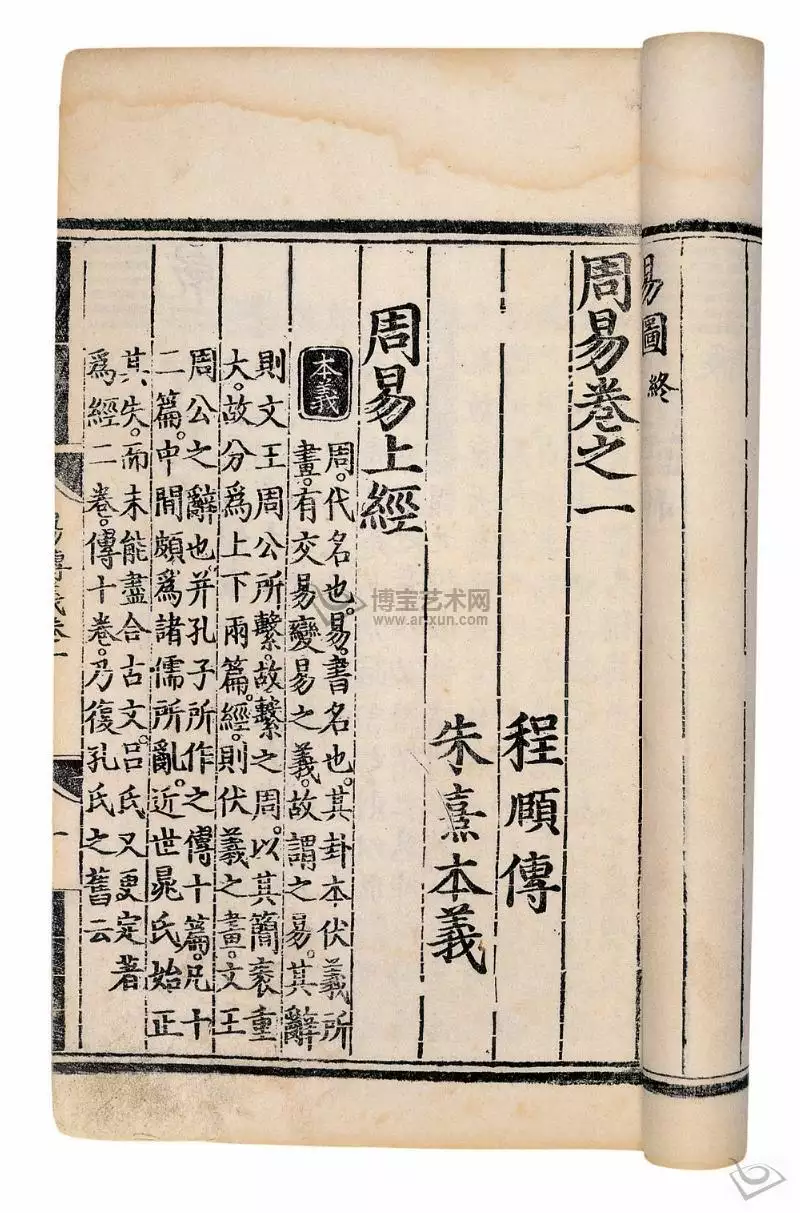 易圖終
周易卷之一
程頤傳
朱熹本義
周易上經
本義
周。代名也。易。書名也。其卦本伏羲所
畫。有交易變易之義。故謂之易。其辭
則文王周公所繫。故繫之周。以其簡袠重
大。故分爲上下兩篇。經。則伏羲之畫。文王
周公之辭也。并孔子所作之傳十篇。凡十
二篇。中間頗爲諸儒所亂。近世晁氏始正
其失。而未能盡合古文。呂氏又更定著
爲經二卷。傳十卷。乃復孔氏之舊云
易傳義卷一
一
博宝艺术网
www.artxun.com